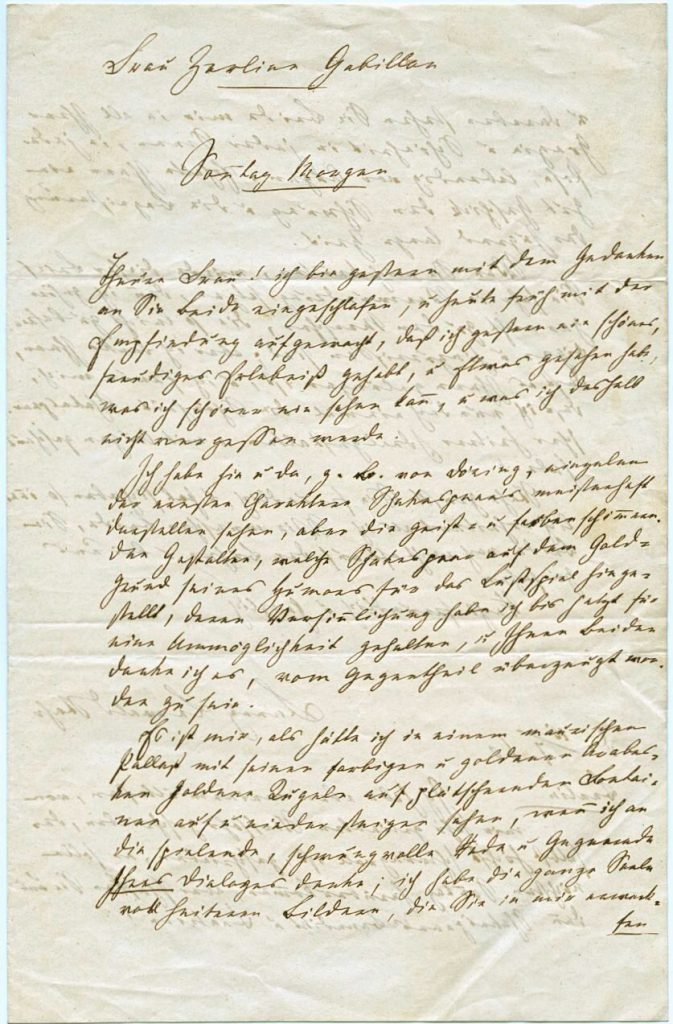 Frau Zerline Gabillon
Sonntag Morgen
Theure Frau! ich bin gestern mit dem Gedanken
an Sie Beide eingeschlafen, u heute früh mit der
Empfindung aufgewacht, daß ich gestern ein schönes,
freudiges Erlebniß gehabt, u Etwas gesehen habe,
was ich schöner nie sehen kann, u was ich deshalb
nicht vergessen werde.
Ich habe hie u da, z. B. von Döring, einzelne
der ernsten Charaktere Shakespeare's meisterhaft
darstellen sehen, aber die geist- u farbenschimmern-
den Gestalten, welche Shakespear auf dem Gold-
grund seines Humors für das Lustspiel hinge-
stellt, deren Versinnlichung habe ich bis jetzt für
eine Unmöglichkeit gehalten, u Ihnen Beiden
danke ich es, vom Gegentheil überzeugt wor-
den zu sein.
Es ist mir, als hätte ich in einem maurischen
Pallast mit seinen farbigen u goldenen Arabes-
ken goldene Kugeln auf plätschernden Fontai-
nen auf u nieder steigen sehen, wenn ich an
die spielende, schwungvolle Rede u Gegenrede
Ihres Dialoges denke; ich habe die ganze Seele
voll heiteren Bildern, die Sie in mir erweck-
ten